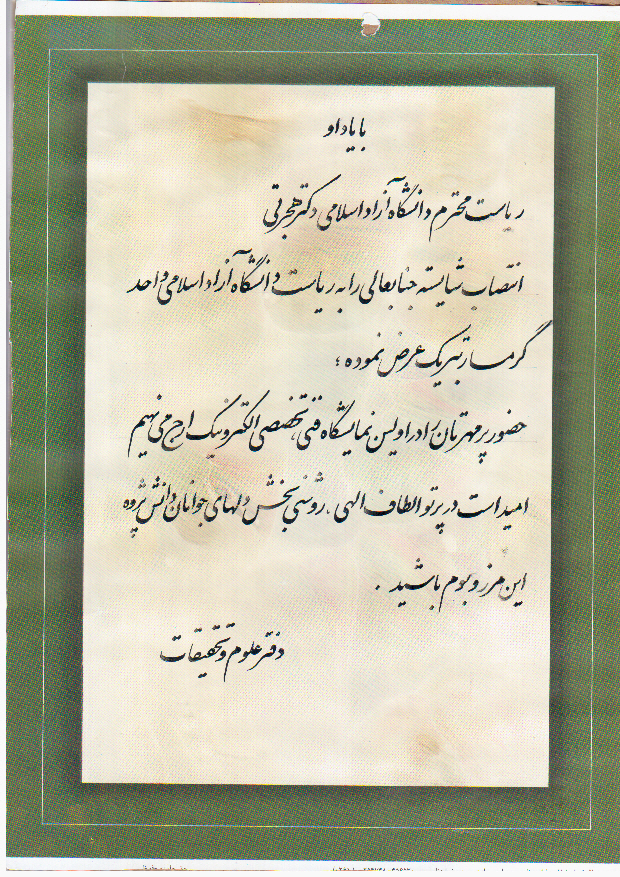 با یاد او
ریاست محترم دانشگاه آزاد اسلامی دکتر هجرتی
انتصاب شایسته جنابعالی را به ریاست دانشگاه آزاد اسلامی واحد
گرمسار تبریک عرض نموده ؛
حضور پر مهرتان را در اولین نمایشگاه فنی تخصصی الکترونیک ارج می نهیم
امید است در پرتو الطاف الهی ، روشنی بخش دلهای جوانان دانش پژوه
این مرز و بوم باشید .
دفتر علوم و تحقیقات